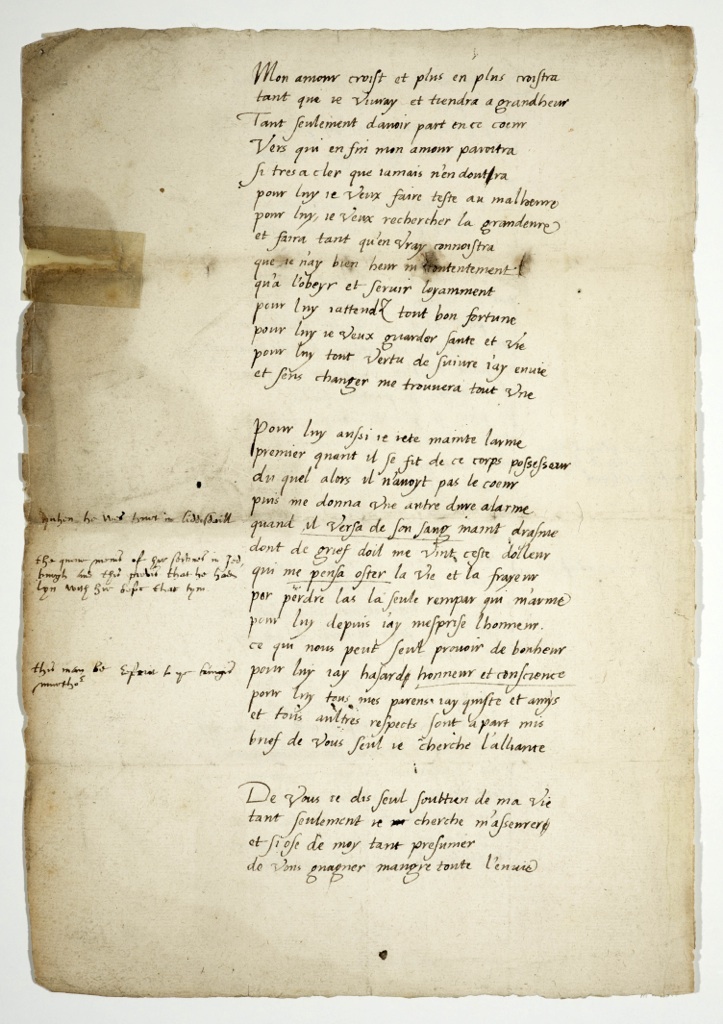 Mon amour croist et plus en plus croistra
tant que ie viuray et tiendra a grandheur
Tant seulement dauoir part en ce coeur
Vers qui en fin mon amour paroitra
si tres a cler que iamais n'en doutra
pour luy ie veux faire teste au malheure
pour luy ie veux rechercher la grandeure
et faira tant qu'en vray connoistra
que ie n'ay bien heur ni contentement
qu'a l'obeyr et seruir loyamment
pour luy iattendz tout bon fortune
pour luy ie veux guarder sante et vie
pour luy tout vertu de suiure i'ay enuie
et sens changer me trouuera tout vne
Pour luy aussi ie iete mainte larme
premier quant il se fit de ce corps possesseur
du quel alors il n'auoyt pas le coeur
puis me donna vne autre dure alarme
quhen he was hurt in liddisdaill
quand il versa de son sang maint drasme
dont de grief doil me vint ceste dolleur
the quene of hir seknes in Jed
burgh this that he had
lyn with hir befor that tym
qui me pensa oster la vie et la frayeur
per perdre las la seule rempar qui m'arme
pour luy depuis iay mesprise lhonneur
ce qui nous peut seul prouoir de bonheur
this may be to ye
pour luy iay hasarde honneur et conscience
pour luy tous mes parens iay quiste et amys
et tous aultres respects sont apart mis
brief de vous seul ie cherche l'alliance
De vous ie dis seul soubtien de ma vie
tant seulement ie cherche m'asseurer
et si ose de moy tant presumer
de vous guagner maugre toute l'enuie